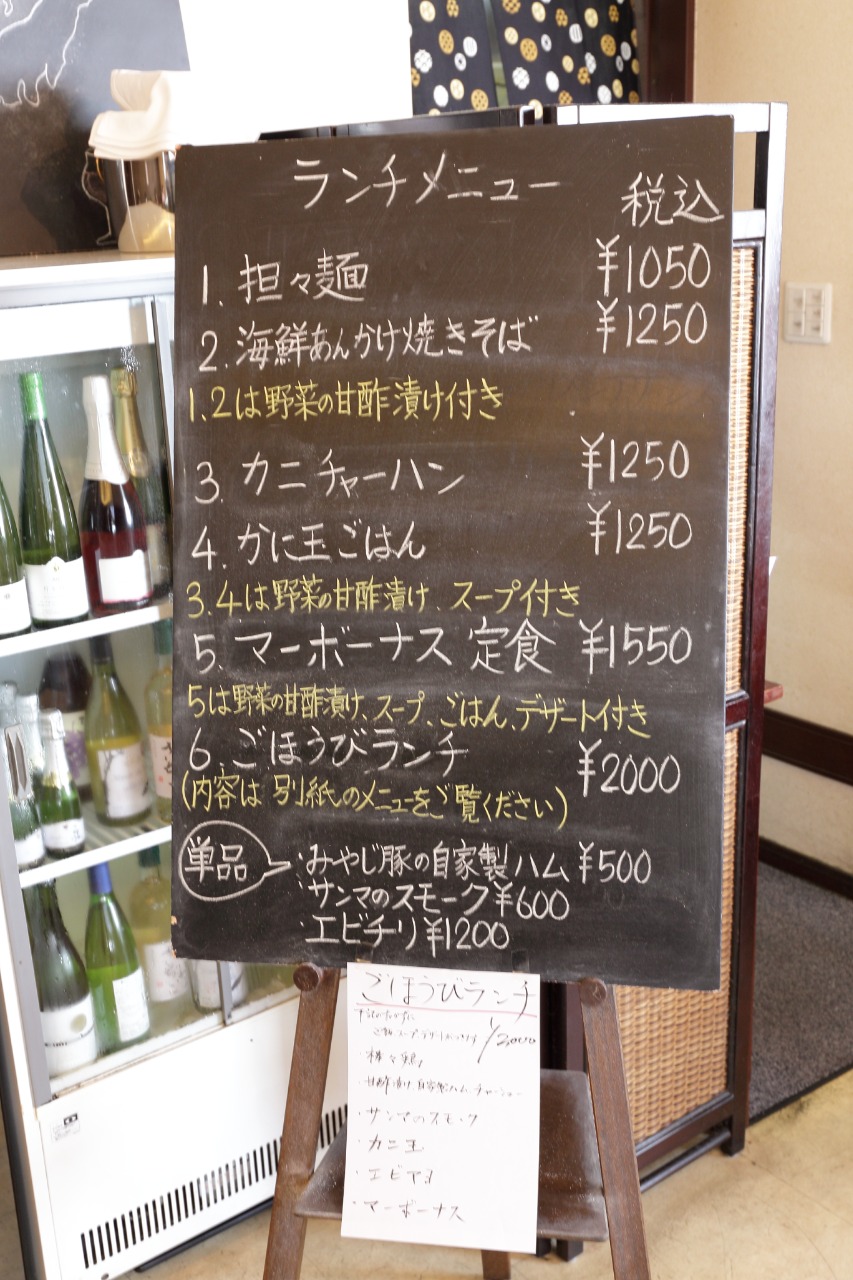 ランチメニュー
税込
1. 担々麺 ¥1050
2. 海鮮あんかけ焼きそば ¥1250
1.2は野菜の甘酢漬け付き
3. カニチャーハン ¥1250
4. かに玉ごはん ¥1250
3.4は野菜の甘酢漬け、スープ付き
5. マーボーナス定食 ¥1550
5は野菜の甘酢漬け、スープ、ごはん、デザート付き
6. ごほうびランチ ¥2000
(内容は別紙のメニューをご覧ください)
単品
・みやじ豚の自家製ハム ¥500
・サンマのスモーク ¥600
・エビチリ ¥1200
ごほうびランチ
¥2000
・棒々鶏
・甘酢漬け 自家製ハム、チャーシュー
・サンマのスモーク
・カニ玉
・エビマヨ
・マーボーナス